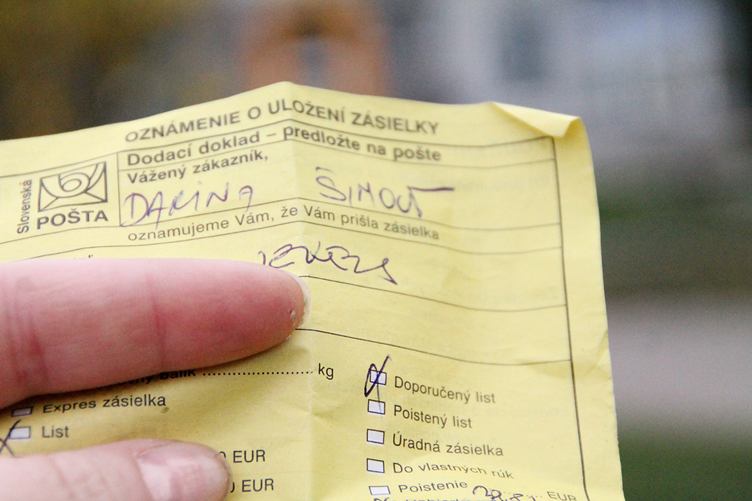 OZNÁMENIE O ULOŽENÍ ZÁSIELKY
Dodací doklad – predložte na pošte
Vážený zákazník,
Slovenská
POŠTA
DARINA
oznamujeme Vám, že Vám prišla zásielka
kg
Expres zásielka
List
EUR
EUR
Doporučený list
Poistený list
Úradná zásielka
Do vlastných rúk
Poistenie